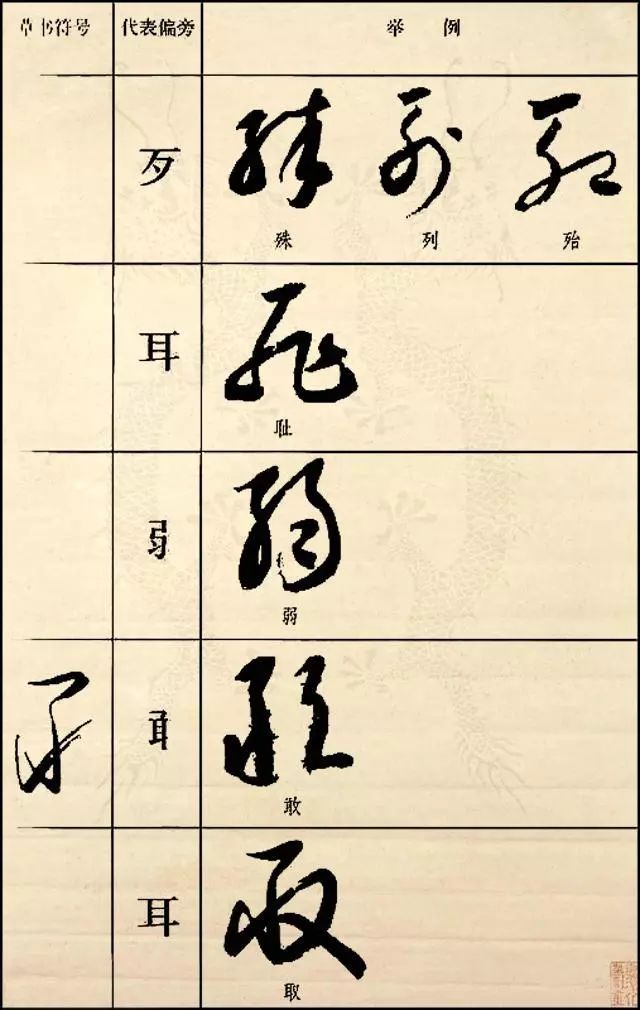 草书符号 代表偏旁 举例
歹 殊 列 殆
耳 耻
弱
敢
耳 取